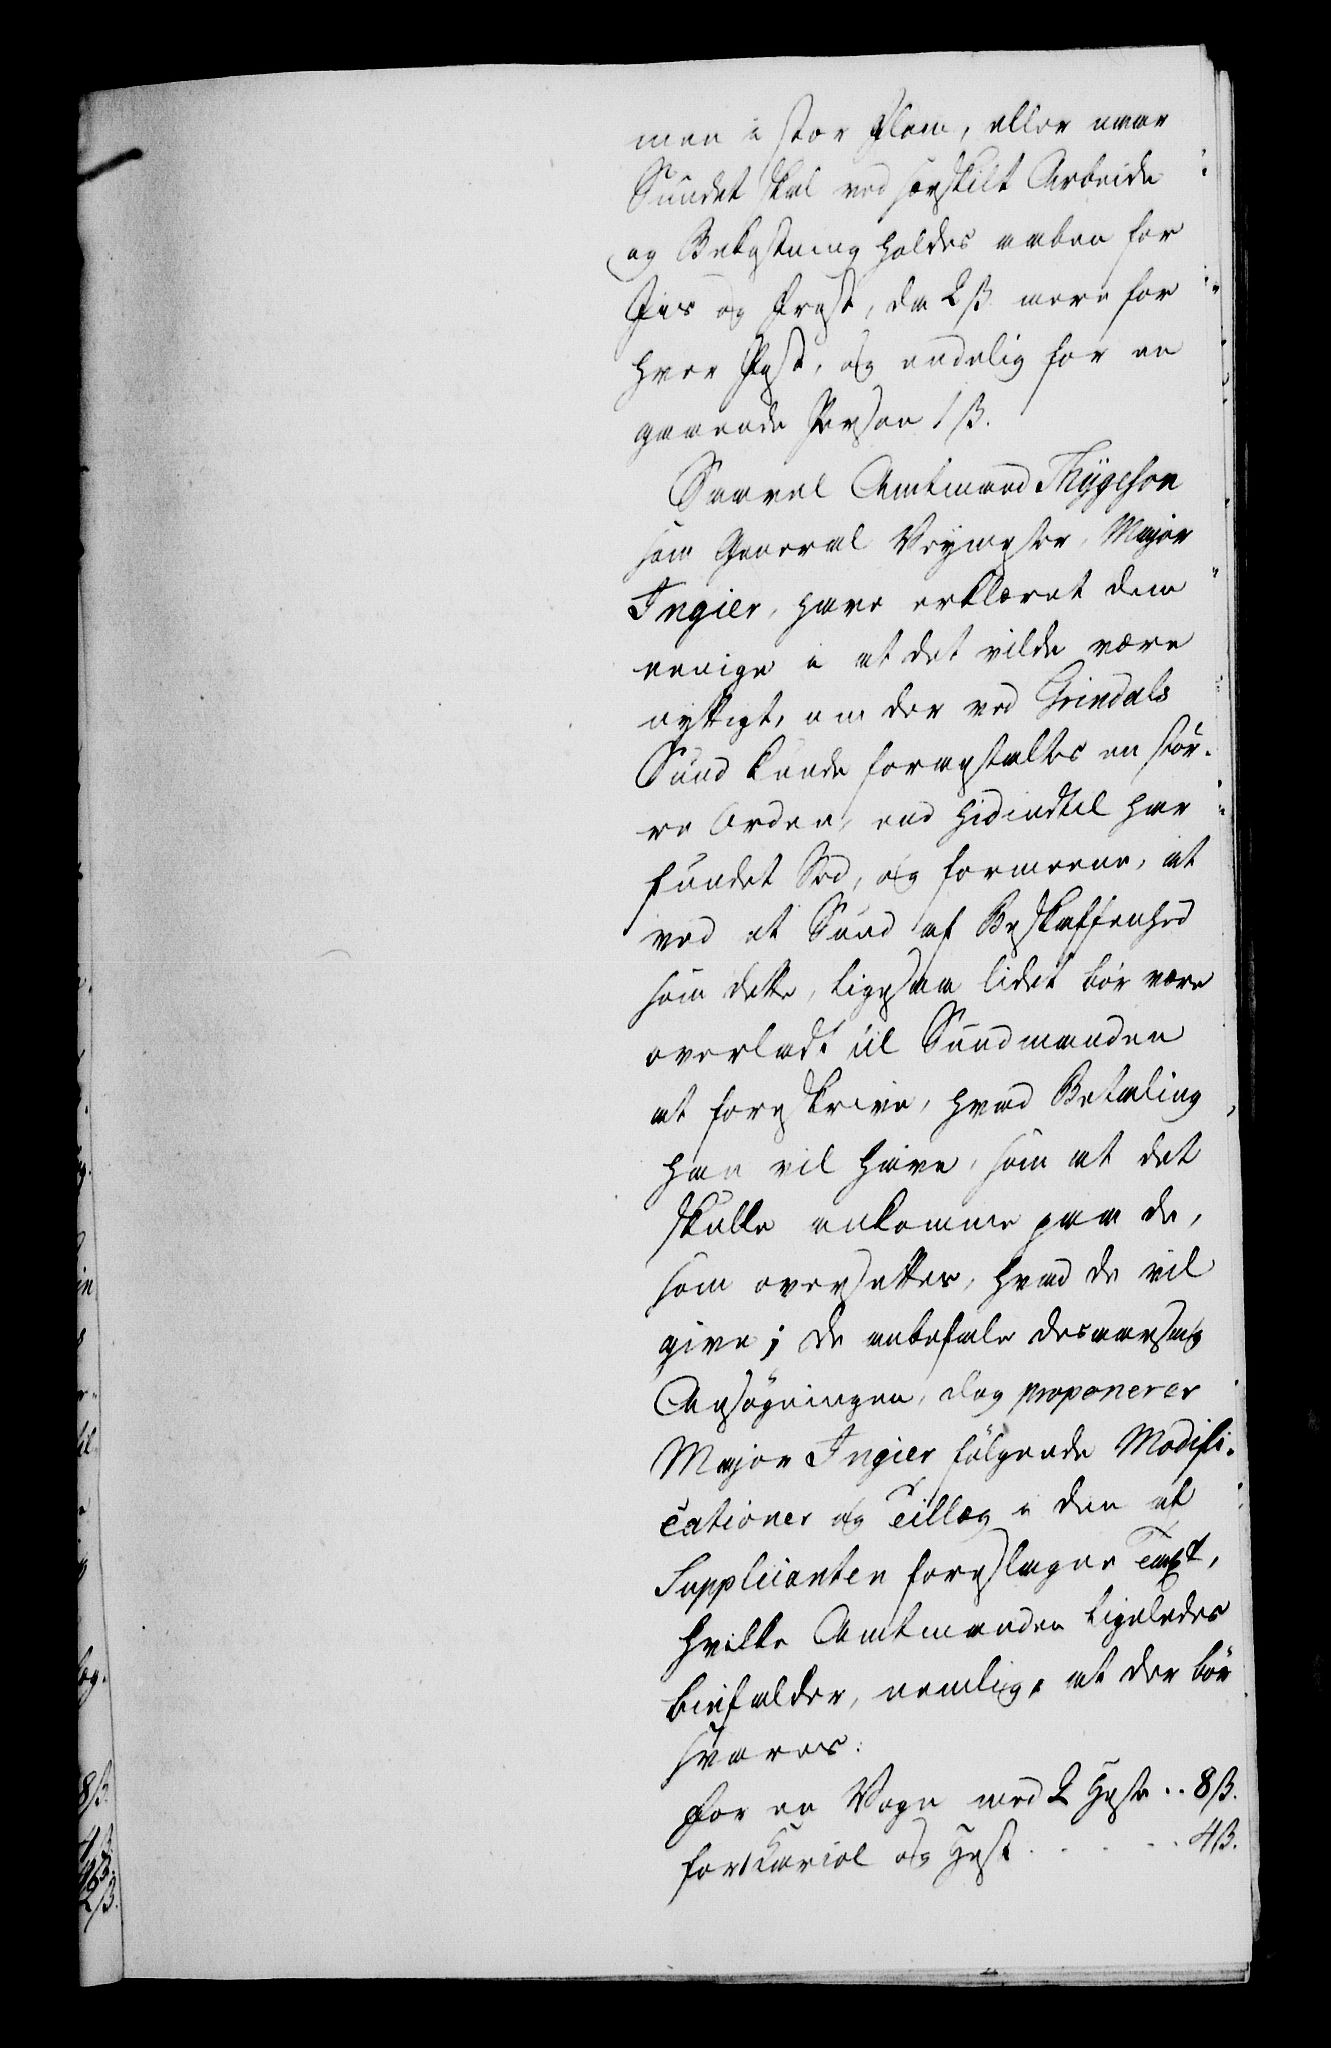 men i stor Flom, eller naar
Sundet skal ved særskilt Arbeide
og Bekostning holdes aaben for
Iis og Frost, da 2 ß mere for
hver Post, og endelig for en
gaaende Person 1 ß.
Saavel Amtmand Thÿgeson
som General Veymester, Major
Ingier, have erklæret dem
eenige i at det vilde være
nyttigt, om der ved Grindals
Sund kunde foranstaltes en stör-
re Orden, end hidindtil har
fundet Sted, og formeene, at
ved et Sund af Beskaffenhed
som dette, ligesaa lidet bör være
overladt til Sundmanden
at foreskrive, hvad Betaling
han vil have, som at det
skulle ankomme paa de,
som oversættes, hvad de vil
give; de anbefale desaarsag
Ansögningen, dog proponerer
Major Ingier fölgende Modifi-
cationer og Tillæg i den af
Supplicanten foreslagne Taxt,
hvilke Amtmanden ligeledes
biefalder, nemlig, at der bör
svares:
for en Vogn med 2 Heste .. 8 ß.
for 1 Kariol og Hest . . . . . 4 ß.